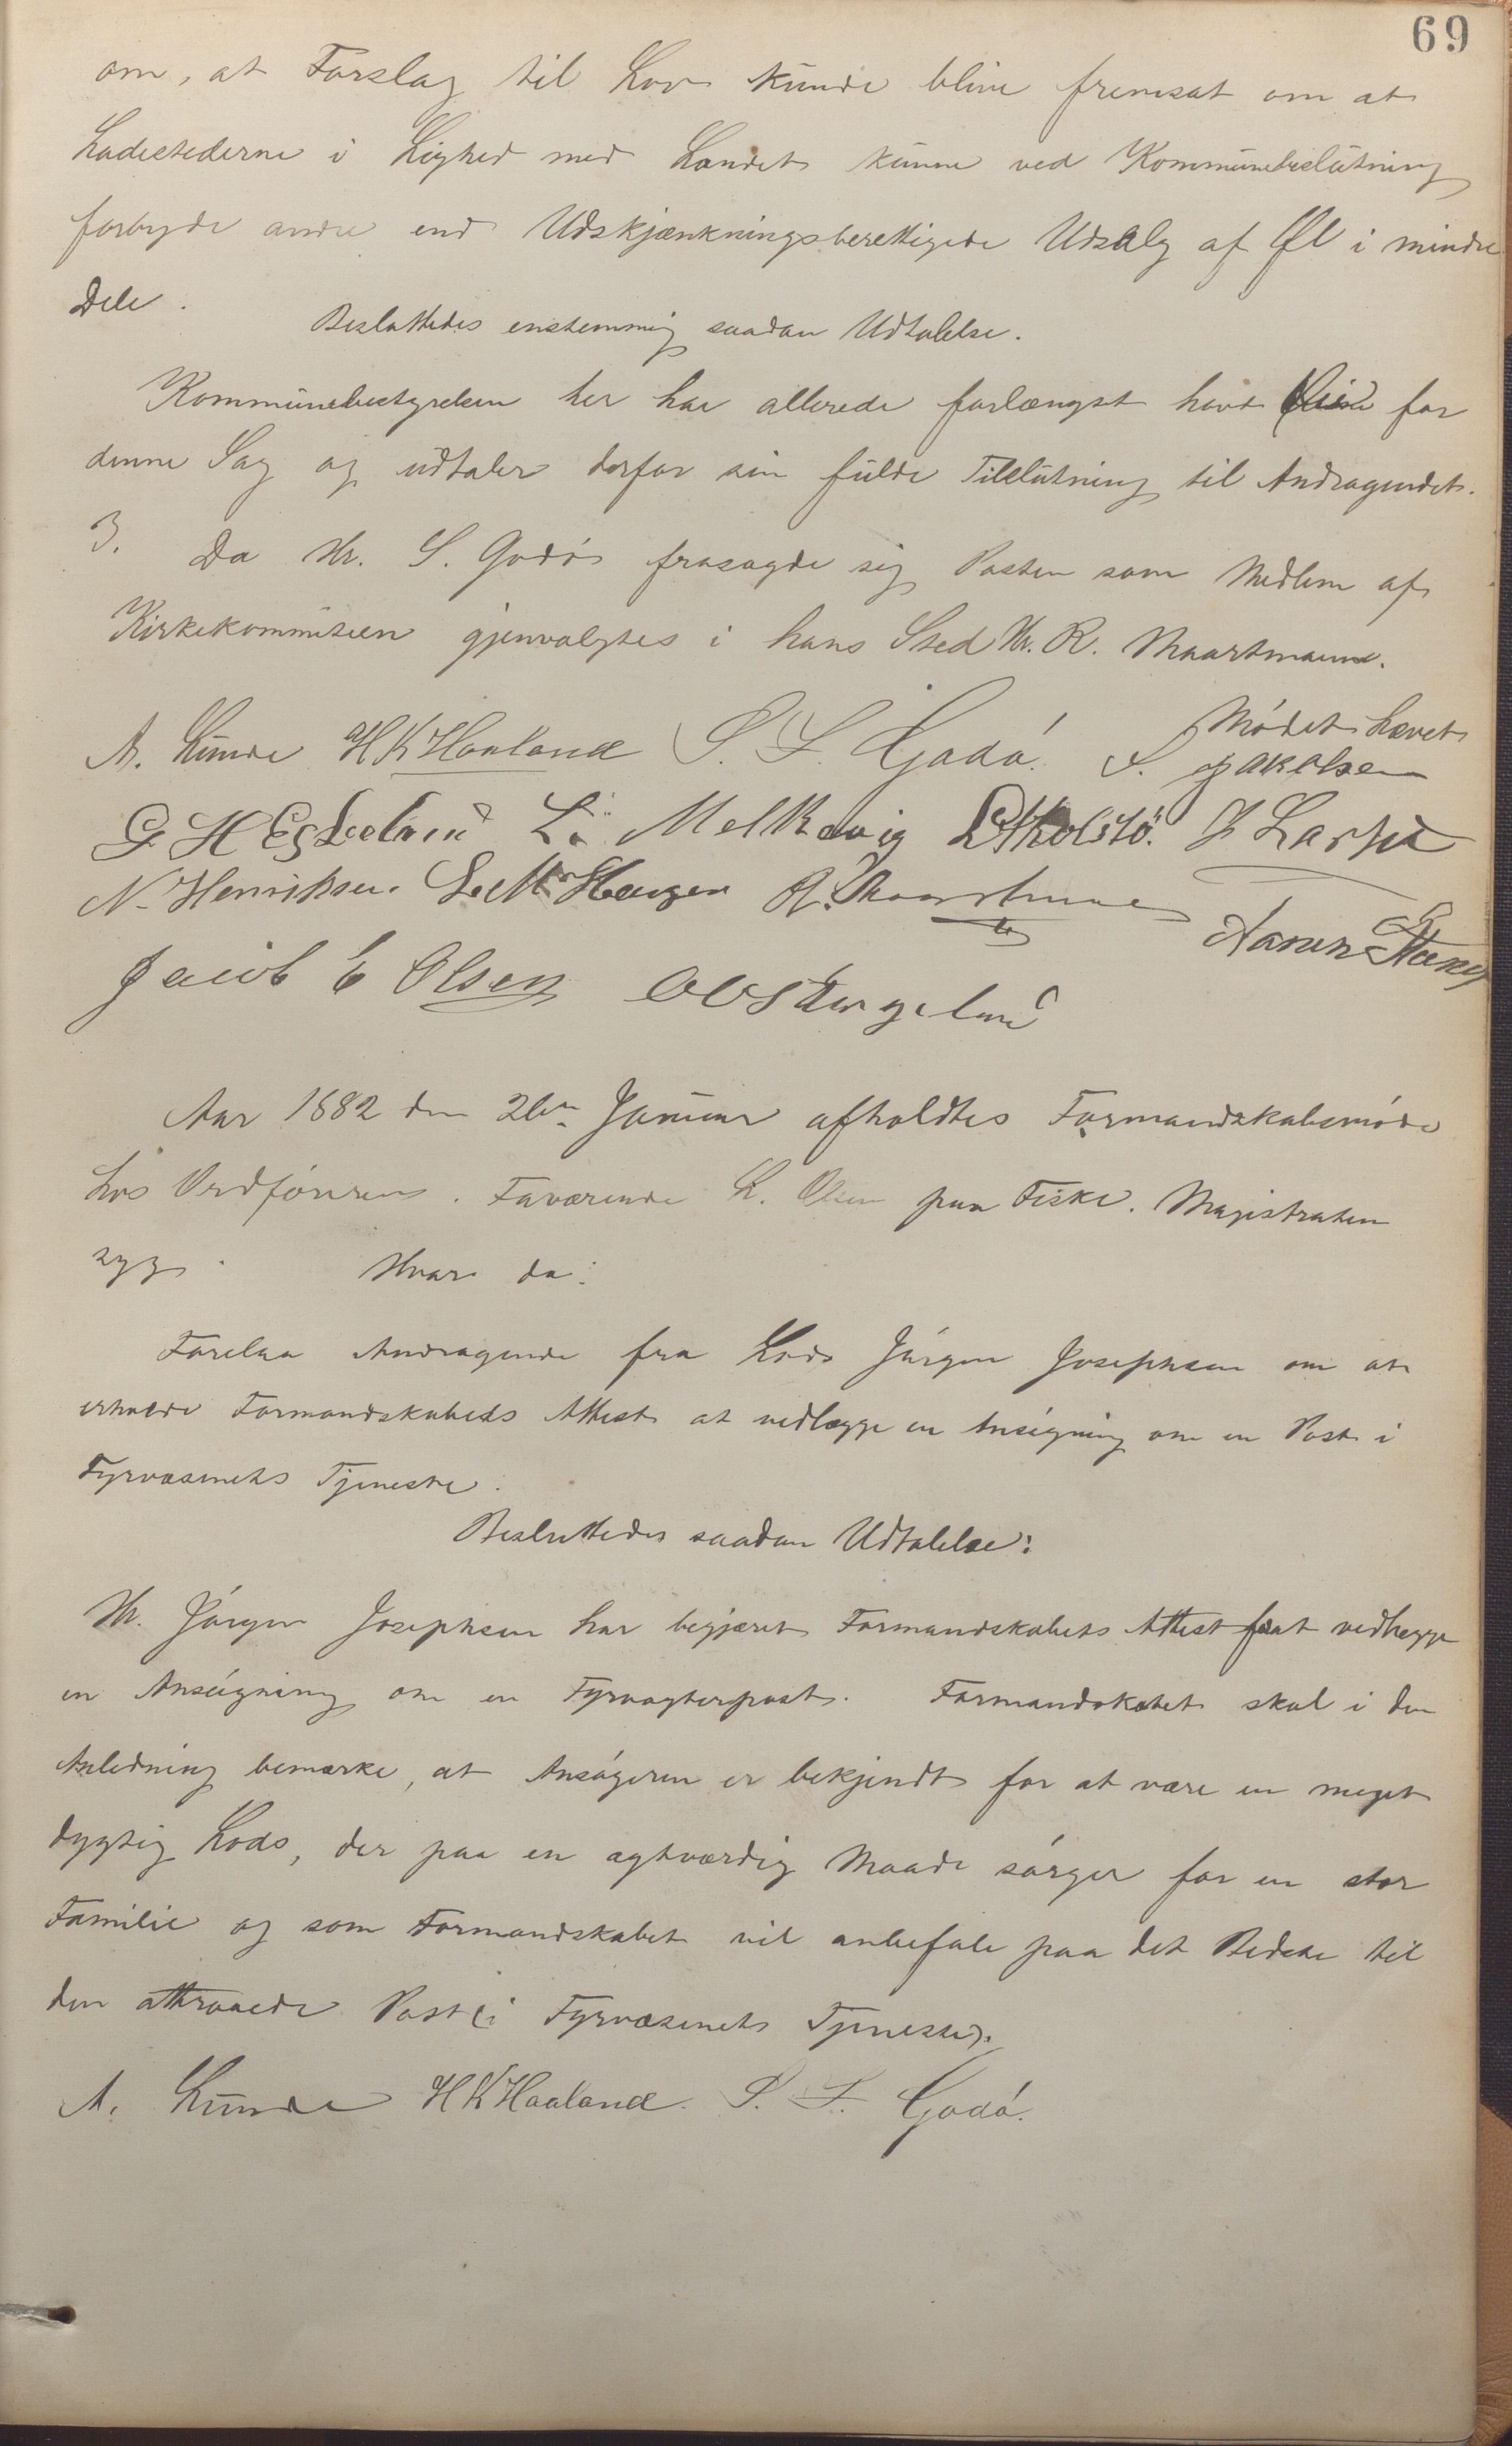 69
om, at Forslag til Lov kunde blive fremsat om at
Ladestederne i Lighed med Landet kunne ved Kommunebeslutning
forbyde andre end Udskjænkningsberettigede Udsalg af Øl i mindre
Dele.
Besluttedes enstemmig saadan Udtalelse.
Kommunebestyrelsen her har allerede forlængst havt for
denne Sag og udtaler derfor sin fulde Tilslutning til Andragendet.
3. Da Hr. S. Godø frasagde sig Posten som Medlem af
Kirkekommisieen gjenvalgtes i hans Sted Hr. R. Maartmann.
Mødet hævet
A. Lunde HKHaaland S. S. Godø. S. Jakobsen
G H Egeland L. Melkevig Larsen
N. Henriksen. Hauger R. Maartmann
Jacob E Olsen
Aar 1882 den 26de Januar afholdtes Formandskabsmøde
hos Ordføreren. Faværende L. Olsen paa Fiske. Magistraten
syg. Hvor da:
Forelaa Andragende fra Lods Jørgen Josephsen om at
erholde Formandskabeds Attest at vedlægge en Ansøgning om en Post i
Fyrvæsenets Tjeneste.
Besluttedes saadan Udtalelse:
Hr. Jørgen Josephsen har begjæret Formandskabets Attest for at vedlægge
en Ansøgning om en Fyrvogterpost. Formandskabet skal i den
Anledning bemærke, at Ansøgeren er bekjendt for at være en meget
dygtig Lods, der paa en agtværdig Maade sørger for en stor
Familie og som Formandskabet vil anbefale paa det Bedste til
den attraaede Post (i Fyrvæsenets Tjeneste).
A. Lunde HKHaaland. S. S. Godø.